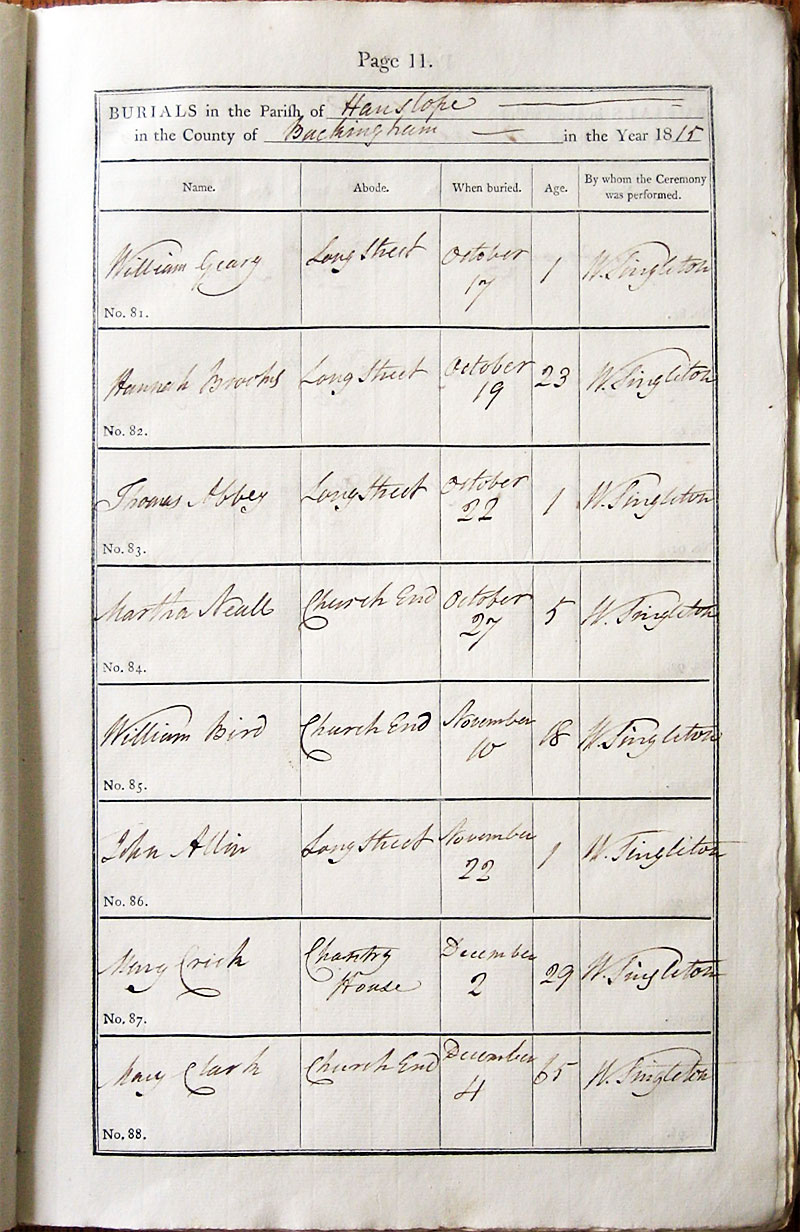 Page 11.
BURIALS in the Parish of Hanslope
in the County of Buckingham in the Year 1815
Name. Abode. When buried. Age. By whom the Ceremony was performed.
William Geary Long Street October 17 1 W. Singleton
No. 81.
Hannah Brooks Long Street October 19 23 W. Singleton
No. 82.
Thomas Abbey Long Street October 22 1 W. Singleton
No. 83.
Martha Neall Church End October 27 5 W. Singleton
No. 84.
William Bird Church End November 10 18 W. Singleton
No. 85.
John Allin Long Street November 22 1 W. Singleton
No. 86.
Mary Crick Chantry House December 2 29 W. Singleton
No. 87.
Mary Clark Church End December 4 65 W. Singleton
No. 88.